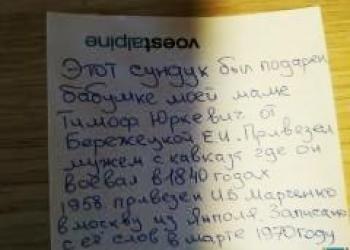 voestalpine
Этот сундук был подарен
бабушке моей маме
Тимоф Юркевич от
Бережецкой Е.И. Привезен
мужем с кавказа где он
воевал в 1840 годах
1958 привезен И.Б. Марченко
в москву из Янполя. Записано
с её слов в марте 1970 году